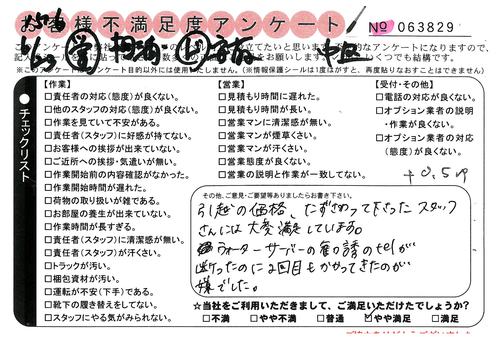 お客様不満足度アンケート
No 063829
【作業】
□責任者の対応(態度)が良くない。
□他のスタッフの対応(態度)が良くない。
□作業を見ていて不安がある。
□責任者(スタッフ)に好感が持てない。
□お客様への挨拶が出来ていない。
□ご近所への挨拶・気遣いが無い。
□作業開始前の内容確認がなかった。
□作業開始時間が遅れた。
□荷物の取り扱いが雑である。
□お部屋の養生が出来ていない。
□作業時間が長すぎる。
□責任者(スタッフ)に清潔感が無い。
□責任者(スタッフ)が汗くさい。
□トラックが汚い。
□梱包資材が汚い。
□運転が不安(下手)である。
□靴下の履き替えをしてない。
□スタッフにやる気がみられない。
【営業】
□見積もり時間に遅れた。
□見積もり時間が長い。
□営業マンに清潔感が無い。
□営業マンが煙草くさい。
□営業マンが汗くさい。
□営業態度が良くない。
□営業の説明と作業が一致してない。
【受付・その他】
□電話の対応が良くない。
□オプション業者の説明
・作業が良くない。
□オプション業者の対応
(態度)が良くない。
チェックリスト
その他、ご意見・ご要望等ありましたらお書き下さい。
引越の価格、たずさわって下さったスタッフ
さんには大変満足しています。
ウォーターサーバーの勧誘のtelが
断ったのに2回目もかかってきたのが
嫌でした。
☆当社をご利用いただきまして、ご満足いただけたでしょうか?
□不満 □やや不満 □普通 ☑やや満足 □満足